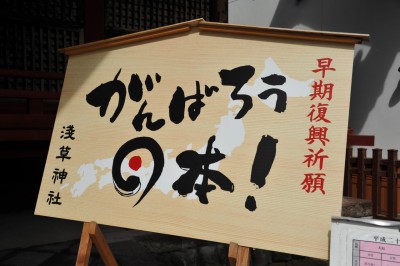 早期復興祈願
がんばろう
日本！
浅草神社
平成二十